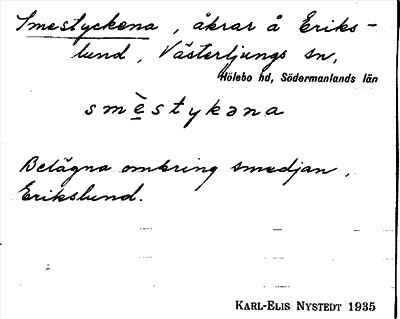 Smestyckena, åkrar å Eriks-
lund, Västerljungs sn,
Hölebo hd, Södermanlands län
smè̱stykəna
Belägna omkring smedjan,
Erikslund.
KARL-ELIS NYSTEDT 1935